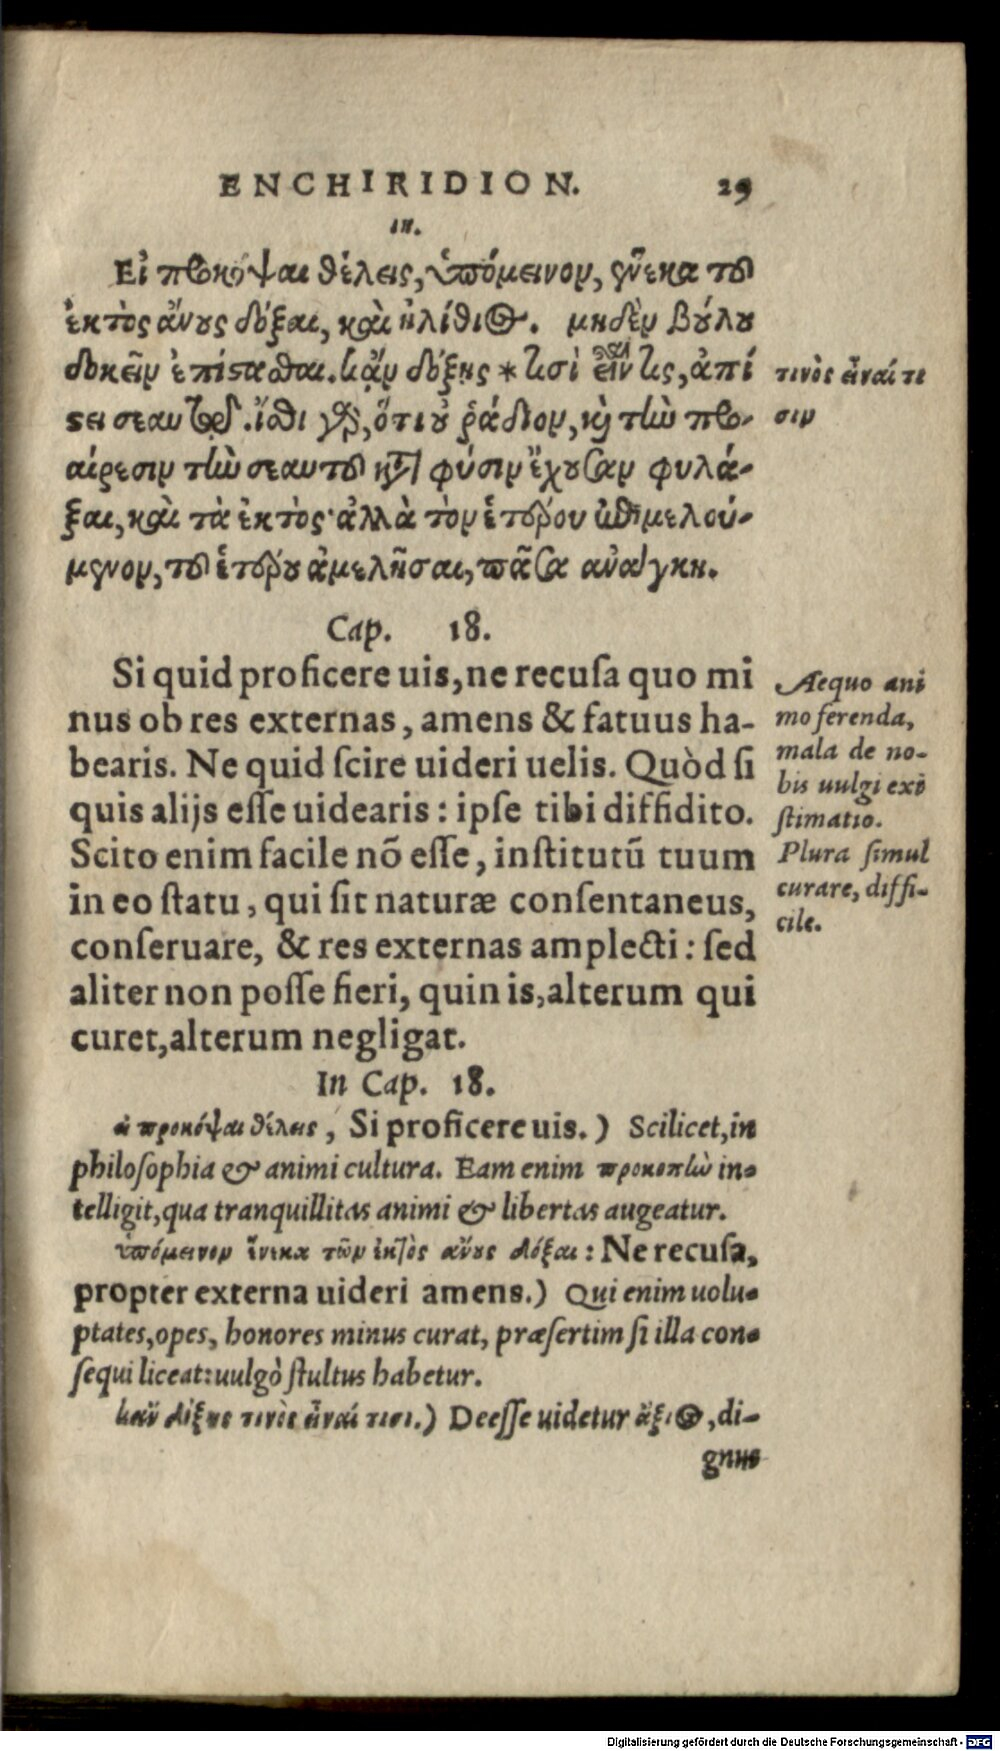 ENCHIRIDION. 29
ιη.
Εἰ προκόψαι θέλεις, ὑπόμεινον, ἕνεκα τοῦ
ἐκτὸς ἄνους δόξαι, καὶ ἠλίθιος. μηδὲν βούλου
δοκεῖν ἐπίστασθαι. κἄν δόξῃς * τισὶ εἶναί τις, ἀπί
στει σεαυτῷ. ἴσθι γὰρ, ὅτι οὐ ῥᾴδιον, καὶ τὴν προ-
αίρεσιν τὴν σεαυτοῦ κατὰ φύσιν ἔχουσαν φυλά-
ξαι, καὶ τὰ ἐκτὸς· ἀλλὰ τὸν ἑτέρου ἐπιμελού-
μενον, τοῦ ἑτέρου ἀμελῆσαι, πᾶσα ἀνάγκη.
τινὸς εἶναί τι
σιν
Cap. 18.
Si quid proficere uis, ne recuſa quo mi
nus ob res externas, amens & fatuus ha-
bearis. Ne quid ſcire uideri uelis. Quòd ſi
quis alijs eſſe uidearis: ipſe tibi diffidito.
Scito enim facile nõ eſſe, inſtitutũ tuum
in eo ſtatu, qui ſit naturæ conſentaneus,
conſeruare, & res externas amplecti: ſed
aliter non poſſe fieri, quin is, alterum qui
curet, alterum negligat.
Aequo ani
mo ferenda,
mala de no-
bis uulgi exi
ſtimatio.
Plura ſimul
curare, diffi-
cile.
In Cap. 18.
εἰ προκόψαι θέλεις, Si proficere uis.) Scilicet, in
philoſophia & animi cultura. Eam enim προκοπὴν in-
telligit, qua tranquillitas animi & libertas augeatur.
ὑπόμεινον ἕνεκα τῶν ἐκτὸς ἄνους δόξαι: Ne recuſa,
propter externa uideri amens.) Qui enim uolu-
ptates, opes, honores minus curat, præſertim ſi illa con-
ſequi liceat: uulgò ſtultus habetur.
κἂν δόξῃς τινὸς εἶναί τισι.) Deeſſe uidetur ἄξιος, di-
gnus
Digitalisierung gefördert durch die Deutsche Forschungsgemeinschaft - DFG